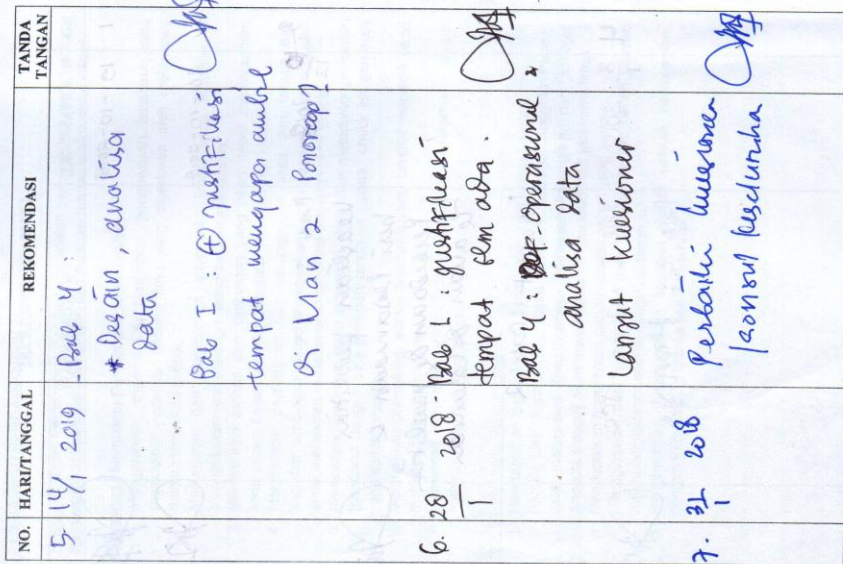 NO. HARI/TANGGAL REKOMENDASI TANDA TANGAN
5. 14/1 2019 - Bab 4 :
* Desain, analisa
data
Bab I ⊕ justifikasi
tempat mengapa ambil
di Man 2 Ponorogo?
6. 28/1 2018 - Bab 1 : justifikasi
tempat blm ada.
Bab 4 : operasional
analisa data
Lanjut kuesioner
7. 31/1 2018 Perbaiki kuesioner
konsul